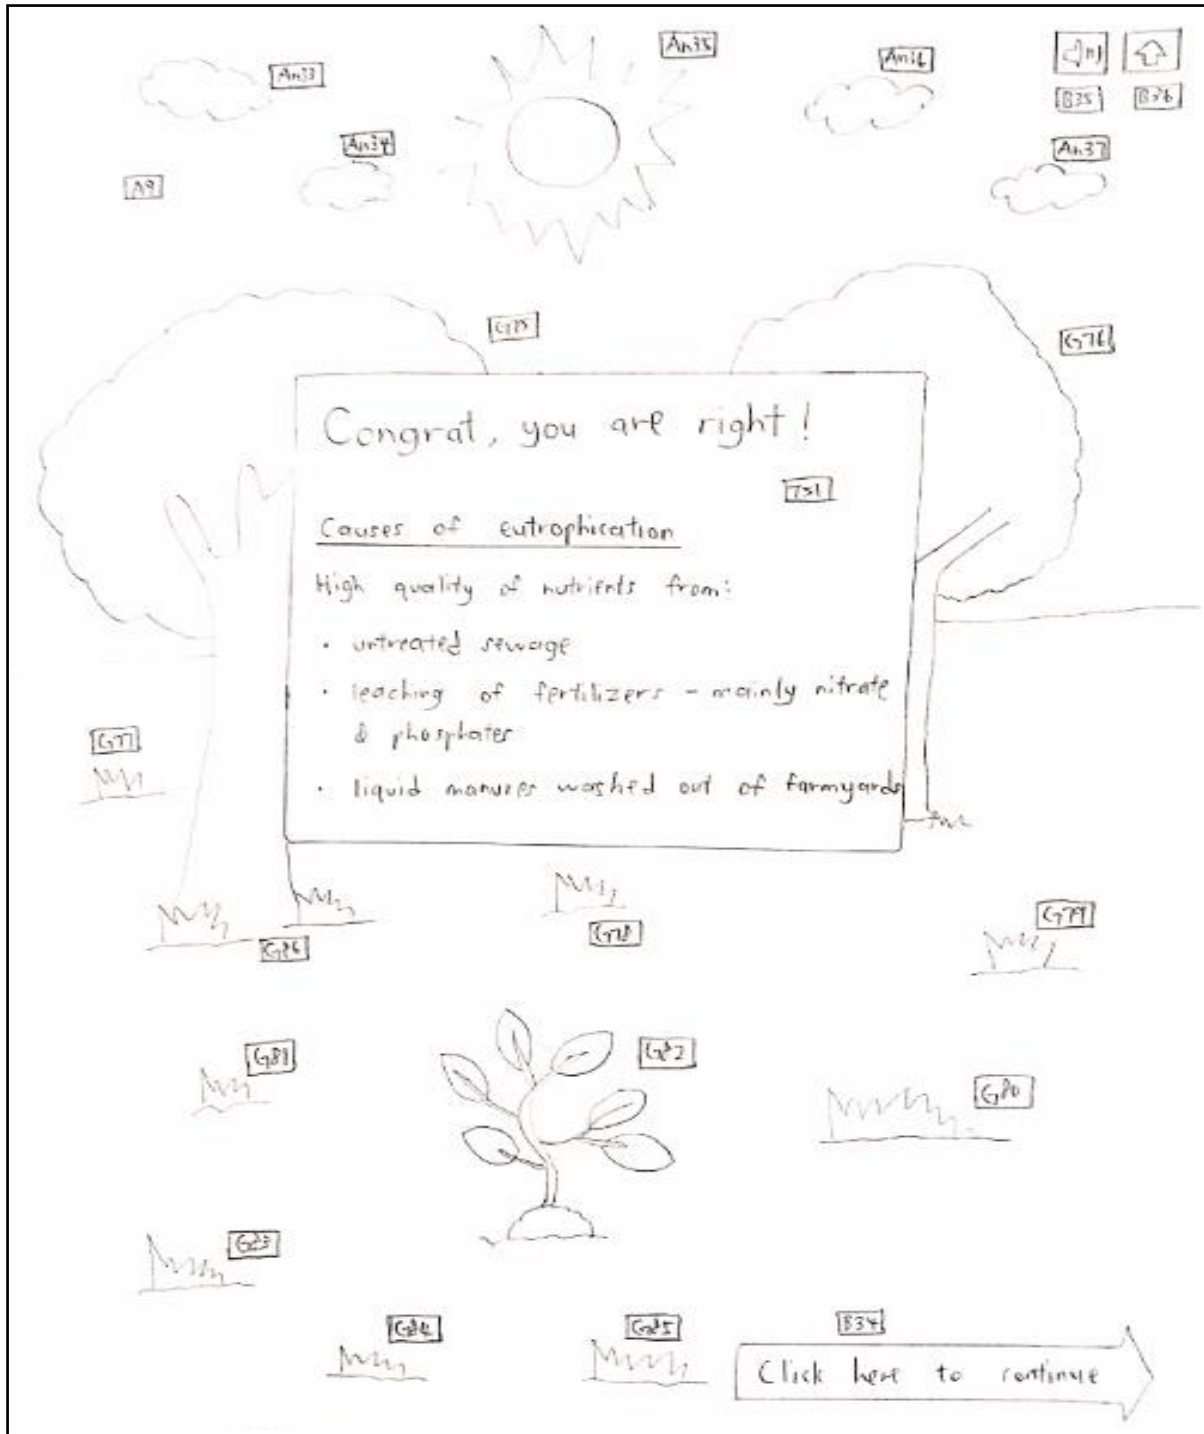 An35
An33
An36
B35
B36
An34
An37
A9
G75
G76
Congrat, you are right!
T51
Causes of eutrophication
High quality of nutrients from:
• untreated sewage
• leaching of fertilizers - mainly nitrate
& phosphates
• liquid manures washed out of farmyards
G77
G78
G79
G86
G81
G82
G80
G83
G84
G85
B34
Click here to continue